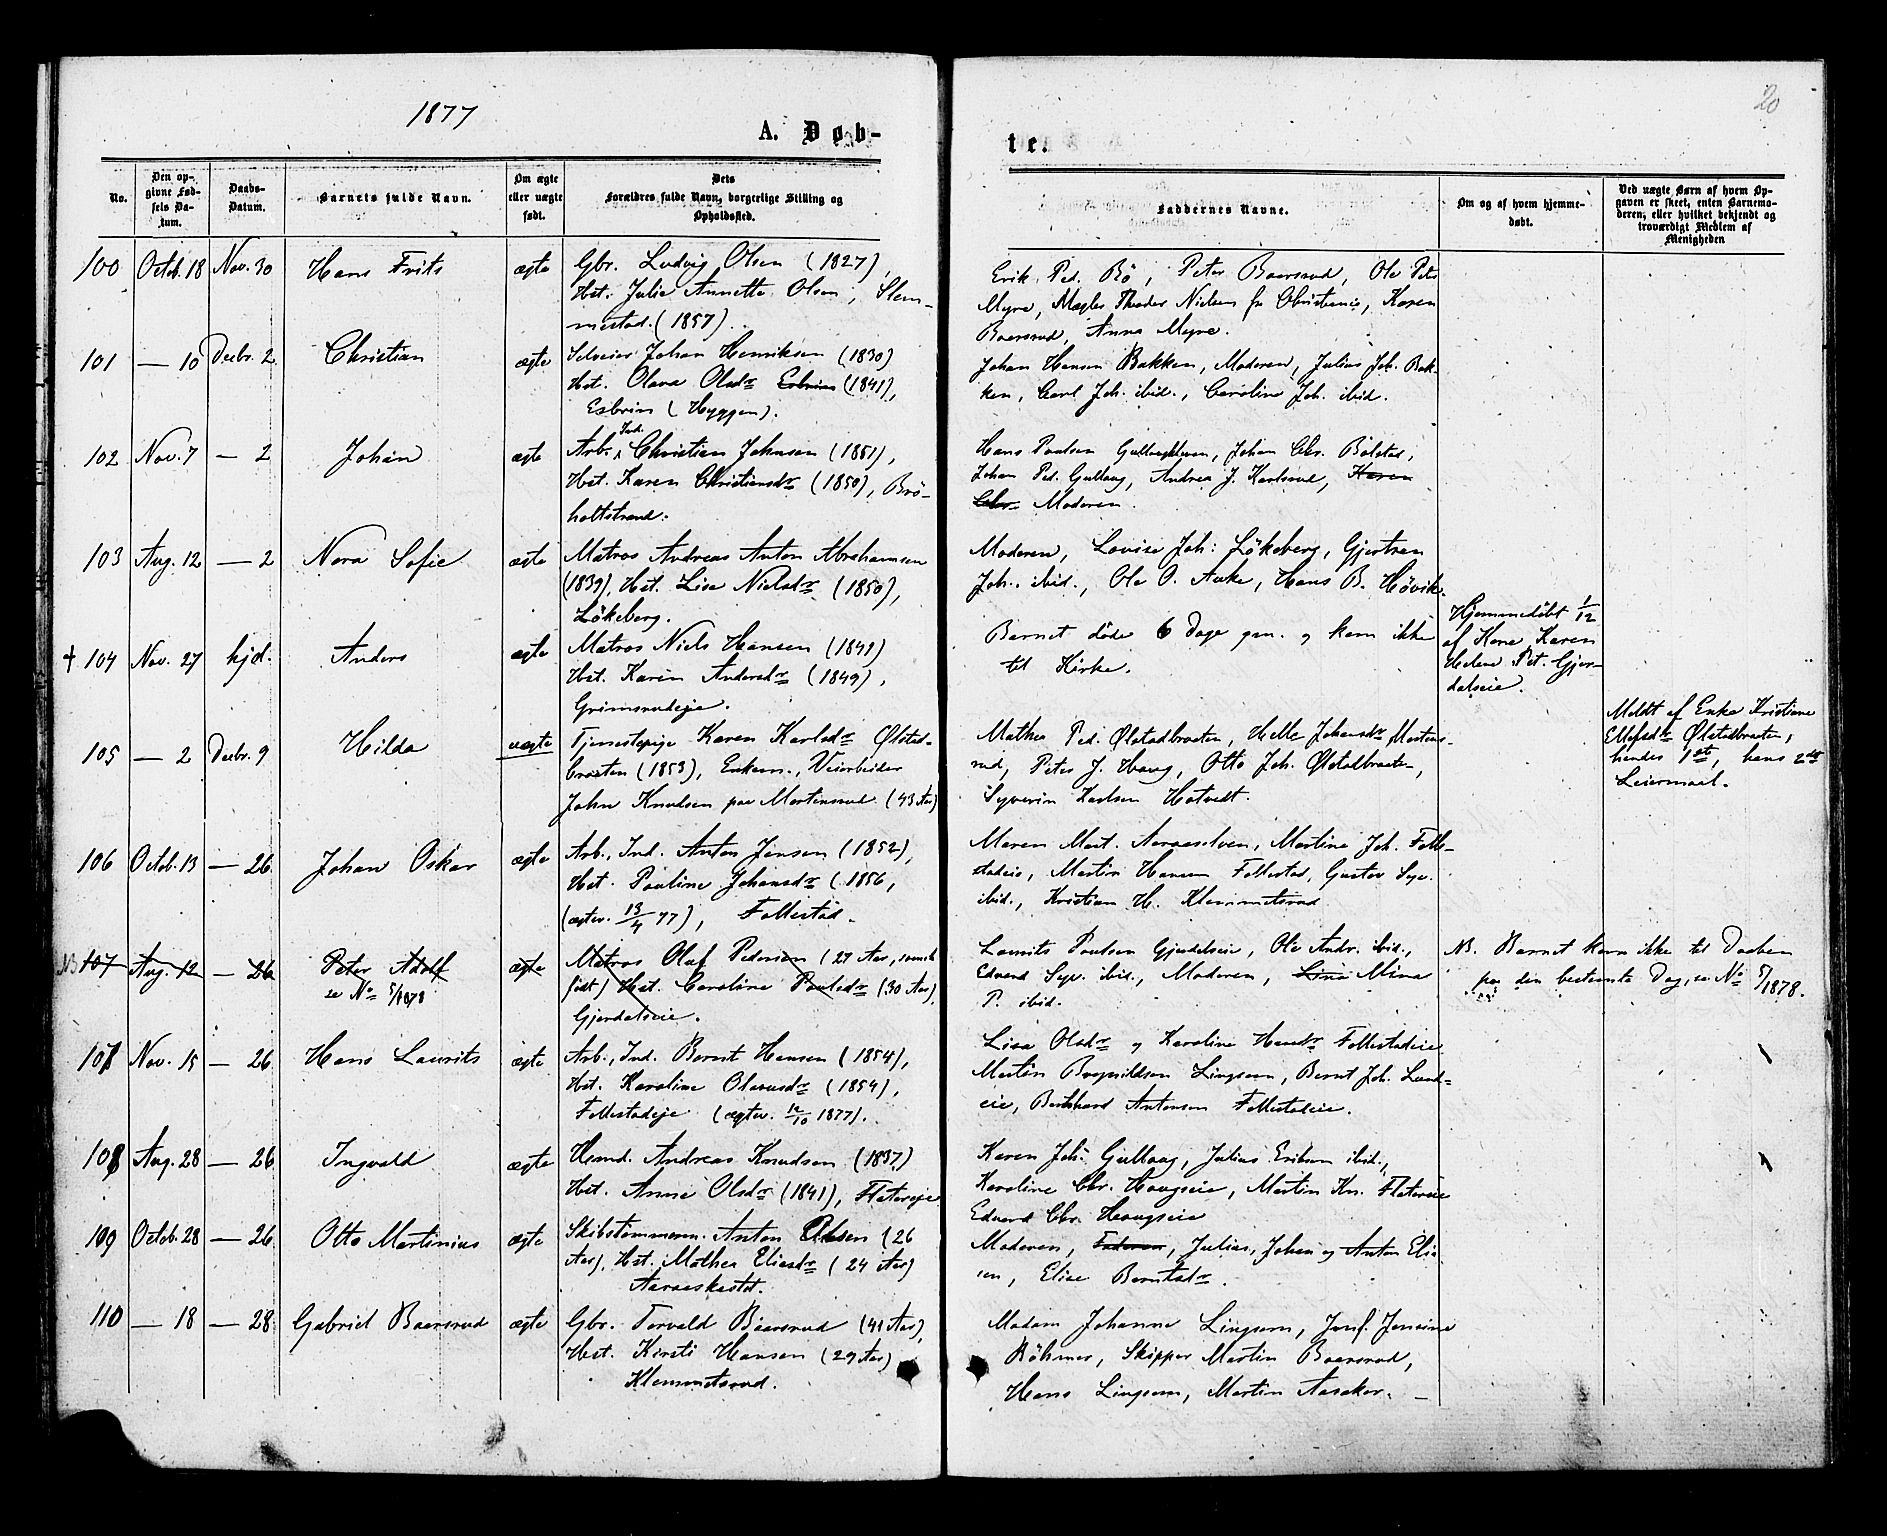 1877
20
A. Døb-
te.
No.
Den op-
givne Fød-
sels Da-
tum.
Daabs-
Datum.
Barnets fulde Navn.
Om ægte
eller uægte
født.
Dets
Forældres fulde Navn, borgerlige Stilling og
Opholdssted.
Faddernes Navne.
Om og af hvem hjemme-
døbt.
Ved uægte Børn af hvem Op-
gaven er skeet, enten Barnemo-
deren, eller hvilket bekjendt og
troværdigt Medlem af
Menigheden
100 Octob. 18 Nov. 30 Hans Frits ægte Gbr. Ludvig Olsen (1827),
Hst. Julie Annette Olsen, Slem-
mestad. (1857).
Erik Ped. Bö, Peter Baarsrud, Ole Peter
Myre, Mægler Theodor Nielsen fr Christiania, Karen
Baarsrud, Anna Myre.
101 — 10 Decbr. 2 Christian ægte Selveier Johan Henriksen (1830)
Hst. Olava Olsdr Esbrien (1841),
Esbrien (Hyggen).
Johan Hansen Bakken, Moderen, Julius Joh. Bak-
ken, Carl Joh. ibid., Caroline Joh. ibid.
102 Nov. 7 — 2 Johan ægte Arb. Ind. Christian Johnsen (1851),
Hst. Karen Christiansdr (1850), Brö-
holtstrand.
Hans Paulsen, Johan Chr. Bölstad,
Johan Ped. Gullaug, Andrea J. Karlsrud, Karen
Chr. Moderen.
103 Aug. 12 — 2 Nora Sofie ægte Matros Andreas Anton Abrahamsen
(1839), Hst. Lise Nielsdr (1850),
Lökeberg.
Moderen, Lovise Joh. Lökeberg, Gjertren
Joh. ibid., Ole O. Auke, Hans B. Hövik.
† 104 Nov. 27 hjd. Anders ægte Matros Niels Hansen (1849)
Hst. Karen Andersdr (1849),
Grimsrudeje.
Barnet döde 6 Dage gm. og kom ikke
til Kirke.
Hjemmedöbt 1/12
af Kone Karen
Helene Pet. Gjer-
dalseie.
105 — 2 Decbr. 9 Hilda uægte Tjenestepige Karen Karlsdr Ølstad-
braaten (1853), Enkem., Veiarbeider
John Knudsen paa Martinsrud (43 Aar)
Mathea Ped. Ølstadbraaten, Helle Johansdr Martins-
rud, Peter J. Haug, Otto Joh. Ølstadbraaten,
Syverin Karlsen Hotvedt.
Meldt af Enke Kristiane
Ellefsdr Ølstadbraaten,
hendes 1st, hans 2det
Leiermaal.
106 Octob. 13 — 26 Johan Oskar ægte Arb., Ind. Anton Jensen (1852),
Hst. Pauline Johansdr (1856,
(ægtev. 13/4 77), Follestad.
Maren Mart. Aaraaselven, Martine Joh. Folle-
stadeie, Martin Hansen Follestad, Gustav Syv.
ibid., Kristian H. Klemmetsrud
NB 107 Aug. 12 — 26 Peter Adolf ægte Matros Oluf Pedersen (27 Aar, svensk
se No 5/1878
født) Hst. Caroline Paulsdr (30 Aar),
Gjerdalseie.
Laurits Paulsen Gjerdalseie, Ole Andr. ibid.,
Edvard Syv. ibid., Moderen, Lina Mina
P. ibid.
NB. Barnet kom ikke til Daaben
paa den bestemte Dag, se No 5/1878.
107 Nov. 15 — 26 Hans Laurits ægte Arb., Ind. Bernt Hansen (1854),
Hst. Karoline Olavusdr (1854),
Follestadeje (ægtev. 12/10 1877).
Lisa Olsdr og Karoline Hansdr Follestadeie
Martin Bogvildsen Lingsom, Bernt Joh. Lund-
eie, Bernhard Antonsen Follestadeie.
108 Aug. 28 — 26 Ingvald ægte Hsmd. Andreas Knudsen (1837)
Hst. Anne Olsdr (1841), Flateseje
Karen Joh. Gullaug, Julius Eriksen ibid.,
Karoline Chr. Haugseie, Martin Kn. Flateseie
Edvard Chr. Haugseie
109 Octob. 28 — 26 Otto Martinius ægte Skibstömmerm. Anton Olsen (26
Aar), Hst. Mathea Eliasdr (24 Aar)
Aaraaskastet.
Moderen, Faderen, Julius, Johan og Anton Elia-
sen, Elise Berntsdr.
110 — 18 — 28 Gabriel Baarsrud ægte Gbr. Torvald Baarsrud (41 Aar),
Hst. Kirsti Hansen (29 Aar)
Klemmetsrud.
Madam Johanne Lingsom, Jomf. Jensine
Böhmer, Skipper Martin Baarsrud,
Hans Lingsom, Martin Aasaker. —